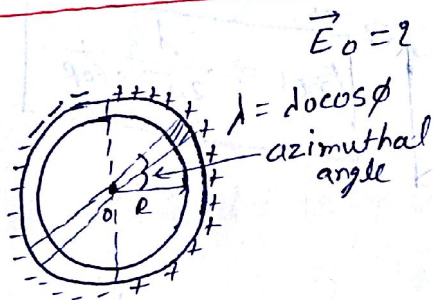 E⃗ₒ = ?
λ = λ₀cosφ
azimuthal
angle
O
R